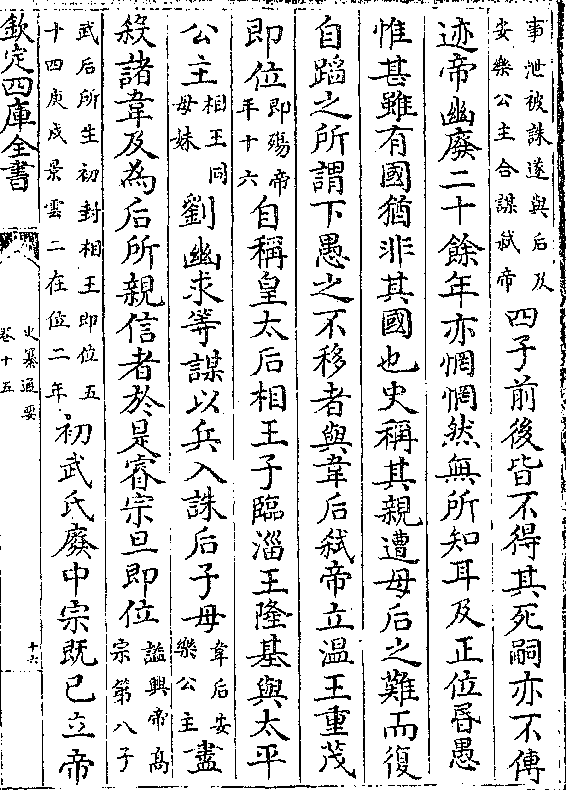 事泄被誅遂與后及
安樂公主合謀弒帝
四子前後皆不得其死嗣亦不傳
迹帝幽廢二十餘年亦惘惘然無所知耳及正位昏愚
惟甚雖有國猶非其國也史稱其親遭母后之難而復
自蹈之所謂下愚之不移者與韋后弒帝立溫王重茂
即位
即殤帝
年十六
自稱皇太后相王子臨淄王隆基與太平
公主
相王同
母妹
劉幽求等謀以兵入誅后子母
韋后安
樂公主
盡
殺諸韋及為后所親信者於是睿宗旦即位
諡興帝高
宗第八子
武后所生初封相王即位五
十四庚戌景雲二在位二年
初武氏廢中宗既已立帝
欽定四庫全書
史纂通要
卷十五
十六